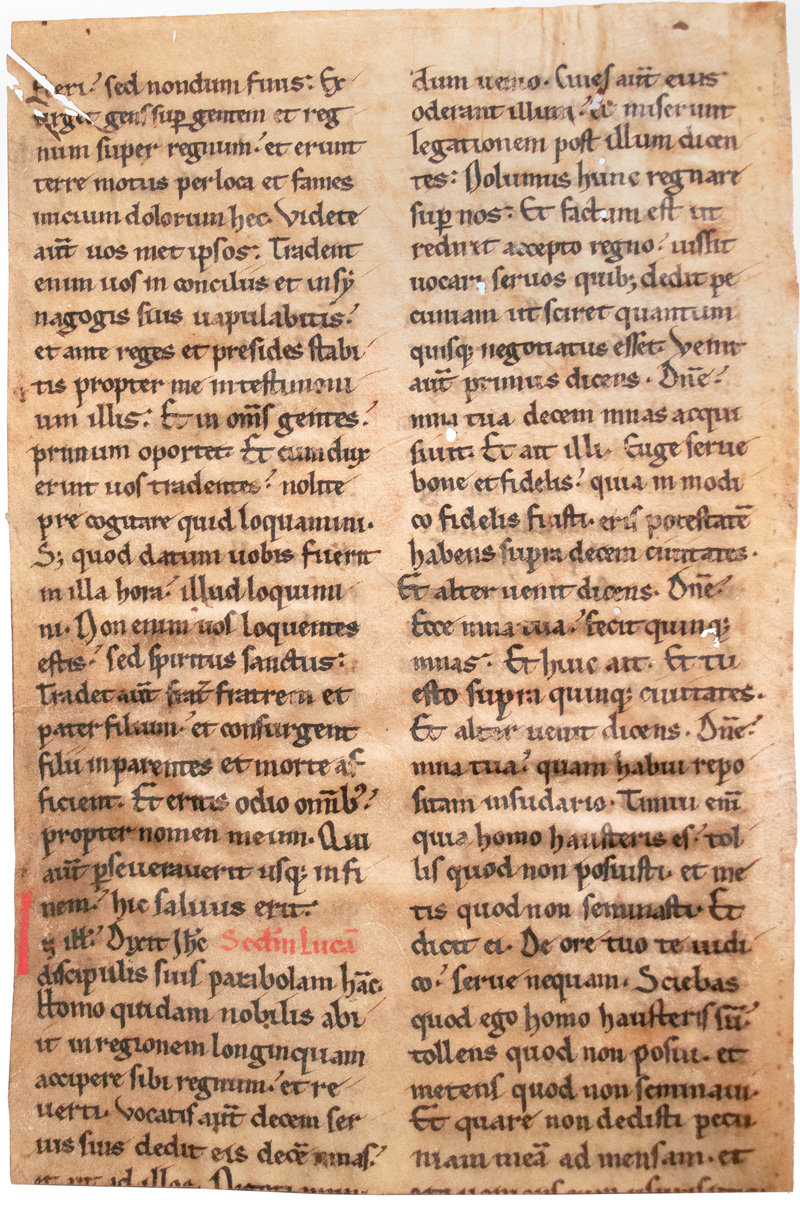 fieri. sed nondum finis. Ex
urget gens sup gentem et reg
num super regnum. et erunt
terre motus per loca et fames
inicium dolorum hec. Videte
aut uos met ipsos. Tradent
enim uos in conciliis et in sy
nagogis suis uapulabitis.
et ante reges et presides stabi
tis propter me in testimoni
um illis. Et in oms gentes.
primum oportet. Et cum dux
erint uos tradentes. nolite
pre cogitare quid loquamini.
S; quod datum uobis fuerit
in illa hora. illud loquimi
ni. Non enim uos loquentes
estis. sed spiritus sanctus.
Tradet aut frat fratrem et
pater filium. et consurgent
filii in parentes et morte af
ficient. Et eritis odio omib;
propter nomen meum. Qui
aut pseuerauerit usq; in fi
nem. hic saluus erit.
In ill. Dixit ihc Scdm Lucā
discipulis suis parabolam hāc.
Homo quidam nobilis abi
it in regionem longinquam
accipere sibi regnum. et re
uerti. Vocatis aut decem ser
uis suis dedit eis decē mnas.
et ait ad illos.
dum uenio. Ciues aut eius
oderant illum. et miserunt
legationem post illum dicen
tes. Nolumus hunc regnare
sup nos. Et factum est ut
rediret accepto regno. iussit
uocari seruos quib; dedit pe
cuniam ut sciret quantum
quisq; negotiatus esset. Venit
aut primus dicens. Dne.
mna tua decem mnas acqui
siuit. Et ait illi. Euge serue
bone et fidelis. quia in modi
co fidelis fuisti. eris potestatē
habens supra decem ciuitates.
Et alter uenit dicens. Dne.
Ecce mna tua. fecit quinq;
mnas. Et huic ait. Et tu
esto supra quinq; ciuitates.
Et alter uenit dicens. Dne.
mna tua. quam habui repo
sitam in sudario. Timui em
quia homo hausteris es. tol
lis quod non posuisti. et me
tis quod non seminasti. Et
dicit ei. De ore tuo te iudi
co. serue nequam. Sciebas
quod ego homo hausteris sū.
tollens quod non posui. et
metens quod non seminaui.
Et quare non dedisti pecu
niam meā ad mensam. et